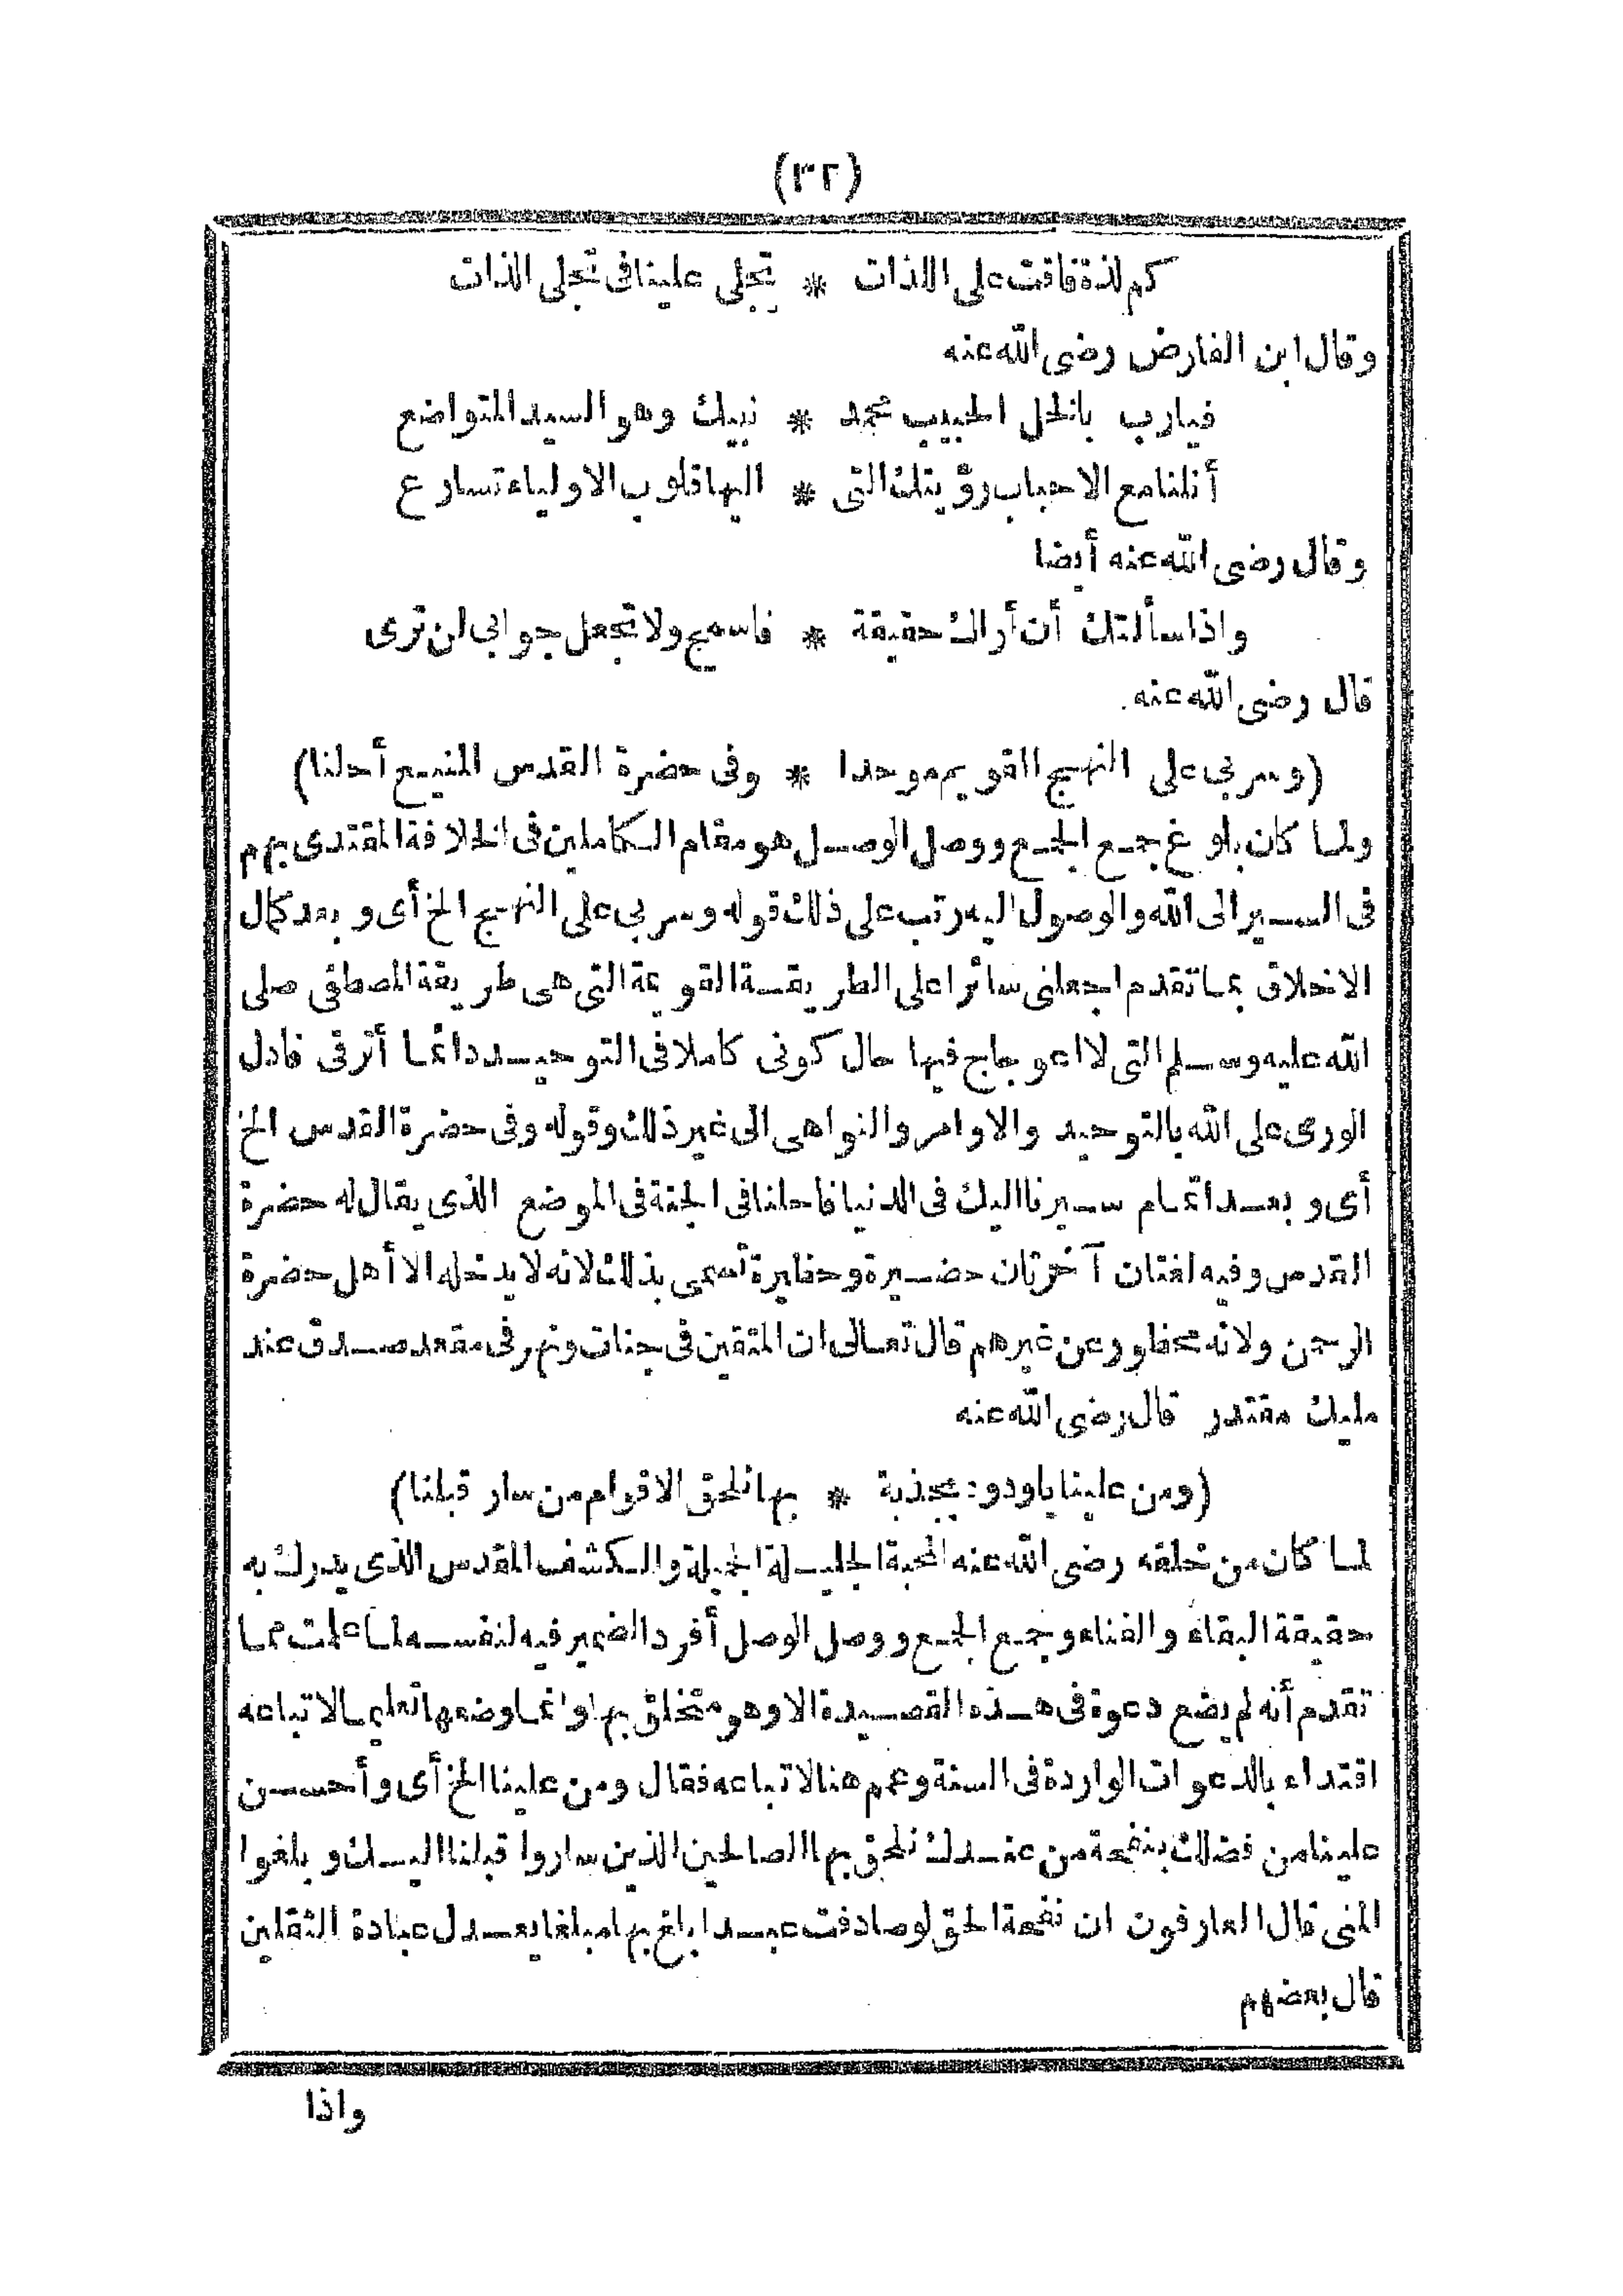 (٣٢)
كم لذة فاقت على اللذات * تجلى علينا فى تجلى الذات
وقال ابن الفارض رضى الله عنه
فيارب بالخل الحبيب محمد * نبيك وهو السيد المتواضع
أنلنا مع الاحباب رؤيتك التى * اليها قلوب الاولياء تسارع
وقال رضى الله عنه أيضا
واذا سألتك أن أراك حقيقة * فاسمح ولا تجعل جوابى لن ترى
قال رضى الله عنه
(وسر بى على النهج القويم موحدا * وفى حضرة القدس المنيع أحلنا)
ولما كان بلوغ جمع الجمع ووصل الوصل هو مقام الكاملين فى الخلافة المقتدى بهم
فى السير الى الله والوصول اليه رتب على ذلك قوله وسر بى على النهج الخ أى وبعد كمال
الاخلاق بما تقدم اجعلنى سائرا على الطريقة القويمة التى هى طريقة المصطفى صلى
الله عليه وسلم التى لا اعوجاج فيها حال كونى كاملا فى التوحيد دائما أترقى فادل
الورى على الله بالتوحيد والاوامر والنواهى الى غير ذلك وقوله وفى حضرة القدس الخ
أى وبعد اتمام سيرنا اليك فى الدنيا فاحلنا فى الجنة فى الموضع الذى يقال له حضرة
القدس وفيه لغتان آخرتان حضيرة وحظيرة تسمى بذلك لانه لا يدخله الا أهل حضرة
الرحمن ولانه محظور عن غيرهم قال تعالى ان المتقين فى جنات ونهر فى مقعد صدق عند
مليك مقتدر قال رضى الله عنه
(ومن علينا ياودود بجذبة * بها نلحق الاقوام من سار قبلنا)
لما كان من خلقه رضى الله عنه المحبة الجليلة الجميلة والكشف المقدس الذى يدرك به
حقيقة البقاء والفناء وجمع الجمع ووصل الوصل أفرد الضمير فيه لنفسه لما علمت مما
تقدم أنه لم يضع دعوة فى هذه القصيدة الا وهو متخلق بها وانما وضعها تعليما لاتباعه
اقتداء بالدعوات الواردة فى السنة وعمم هنا لاتباعه فقال ومن علينا الخ أى وأحسن
علينا من فضلك بنفحة من عندك نلحق بها الصالحين الذين ساروا قبلنا اليك وبلغوا
المنى قال العارفون ان نفحة الحق لو صادفت عبدا بلغ بها مبلغا يعدل عبادة الثقلين
قال بعضهم
واذا